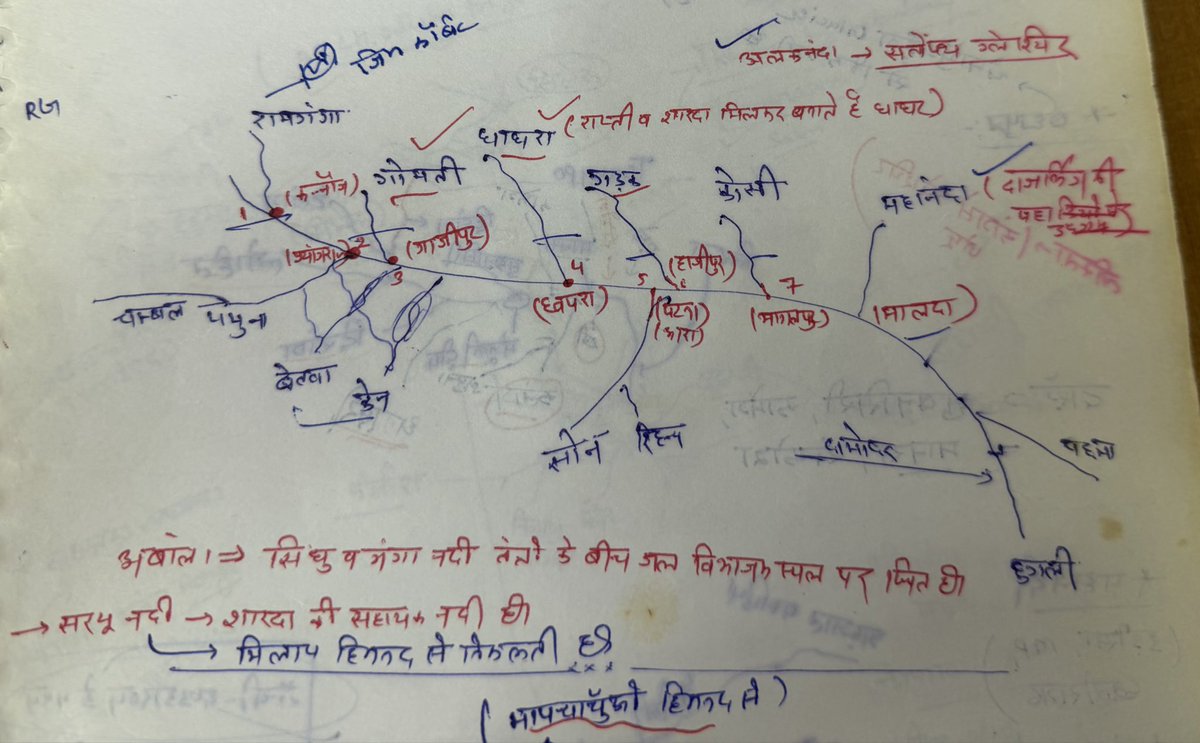 जिम कॉर्बेट
अलकनंदा → सतोपंथ ग्लेशियर
RG
रामगंगा
गोमती
घाघरा (राप्ती व शारदा मिलकर बनाते है घाघरा)
गंडक
कोसी
महानंदा (दार्जिलिंग की
पहा
1
(कन्नौज)
2
(प्रयागराज)
(गाजीपुर)
3
4
(छपरा)
5
6
(हाजीपुर)
(पटना)
(आरा)
7
(भागलपुर)
(मालदा)
चम्बल
यमुना
बेतवा
केन
सोन
रिहन्द
दामोदर
पद्मा
हुगली
अंबाला ⇒ सिंधु व गंगा नदी तंत्रो के बीच जल विभाजक स्थल पर स्थित है।
→ सरयू नदी → शारदा की सहायक नदी है।
→ मिलाम हिमनद से निकलती है
(मापचाचुँगो हिमनद से)